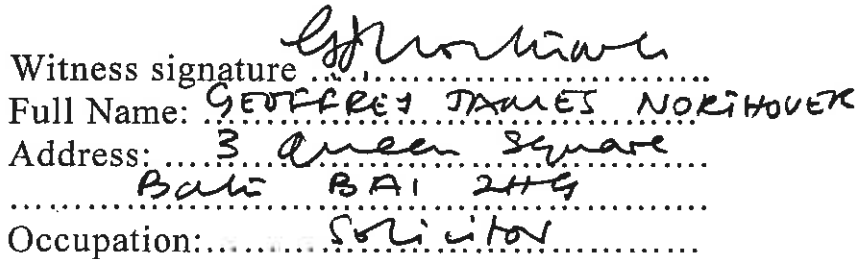 Witness signature
Full Name: GEOFFREY JAMES NORTHOVER
Address: 3 Queen Square
Bath BA1 2HG
Occupation: Solicitor